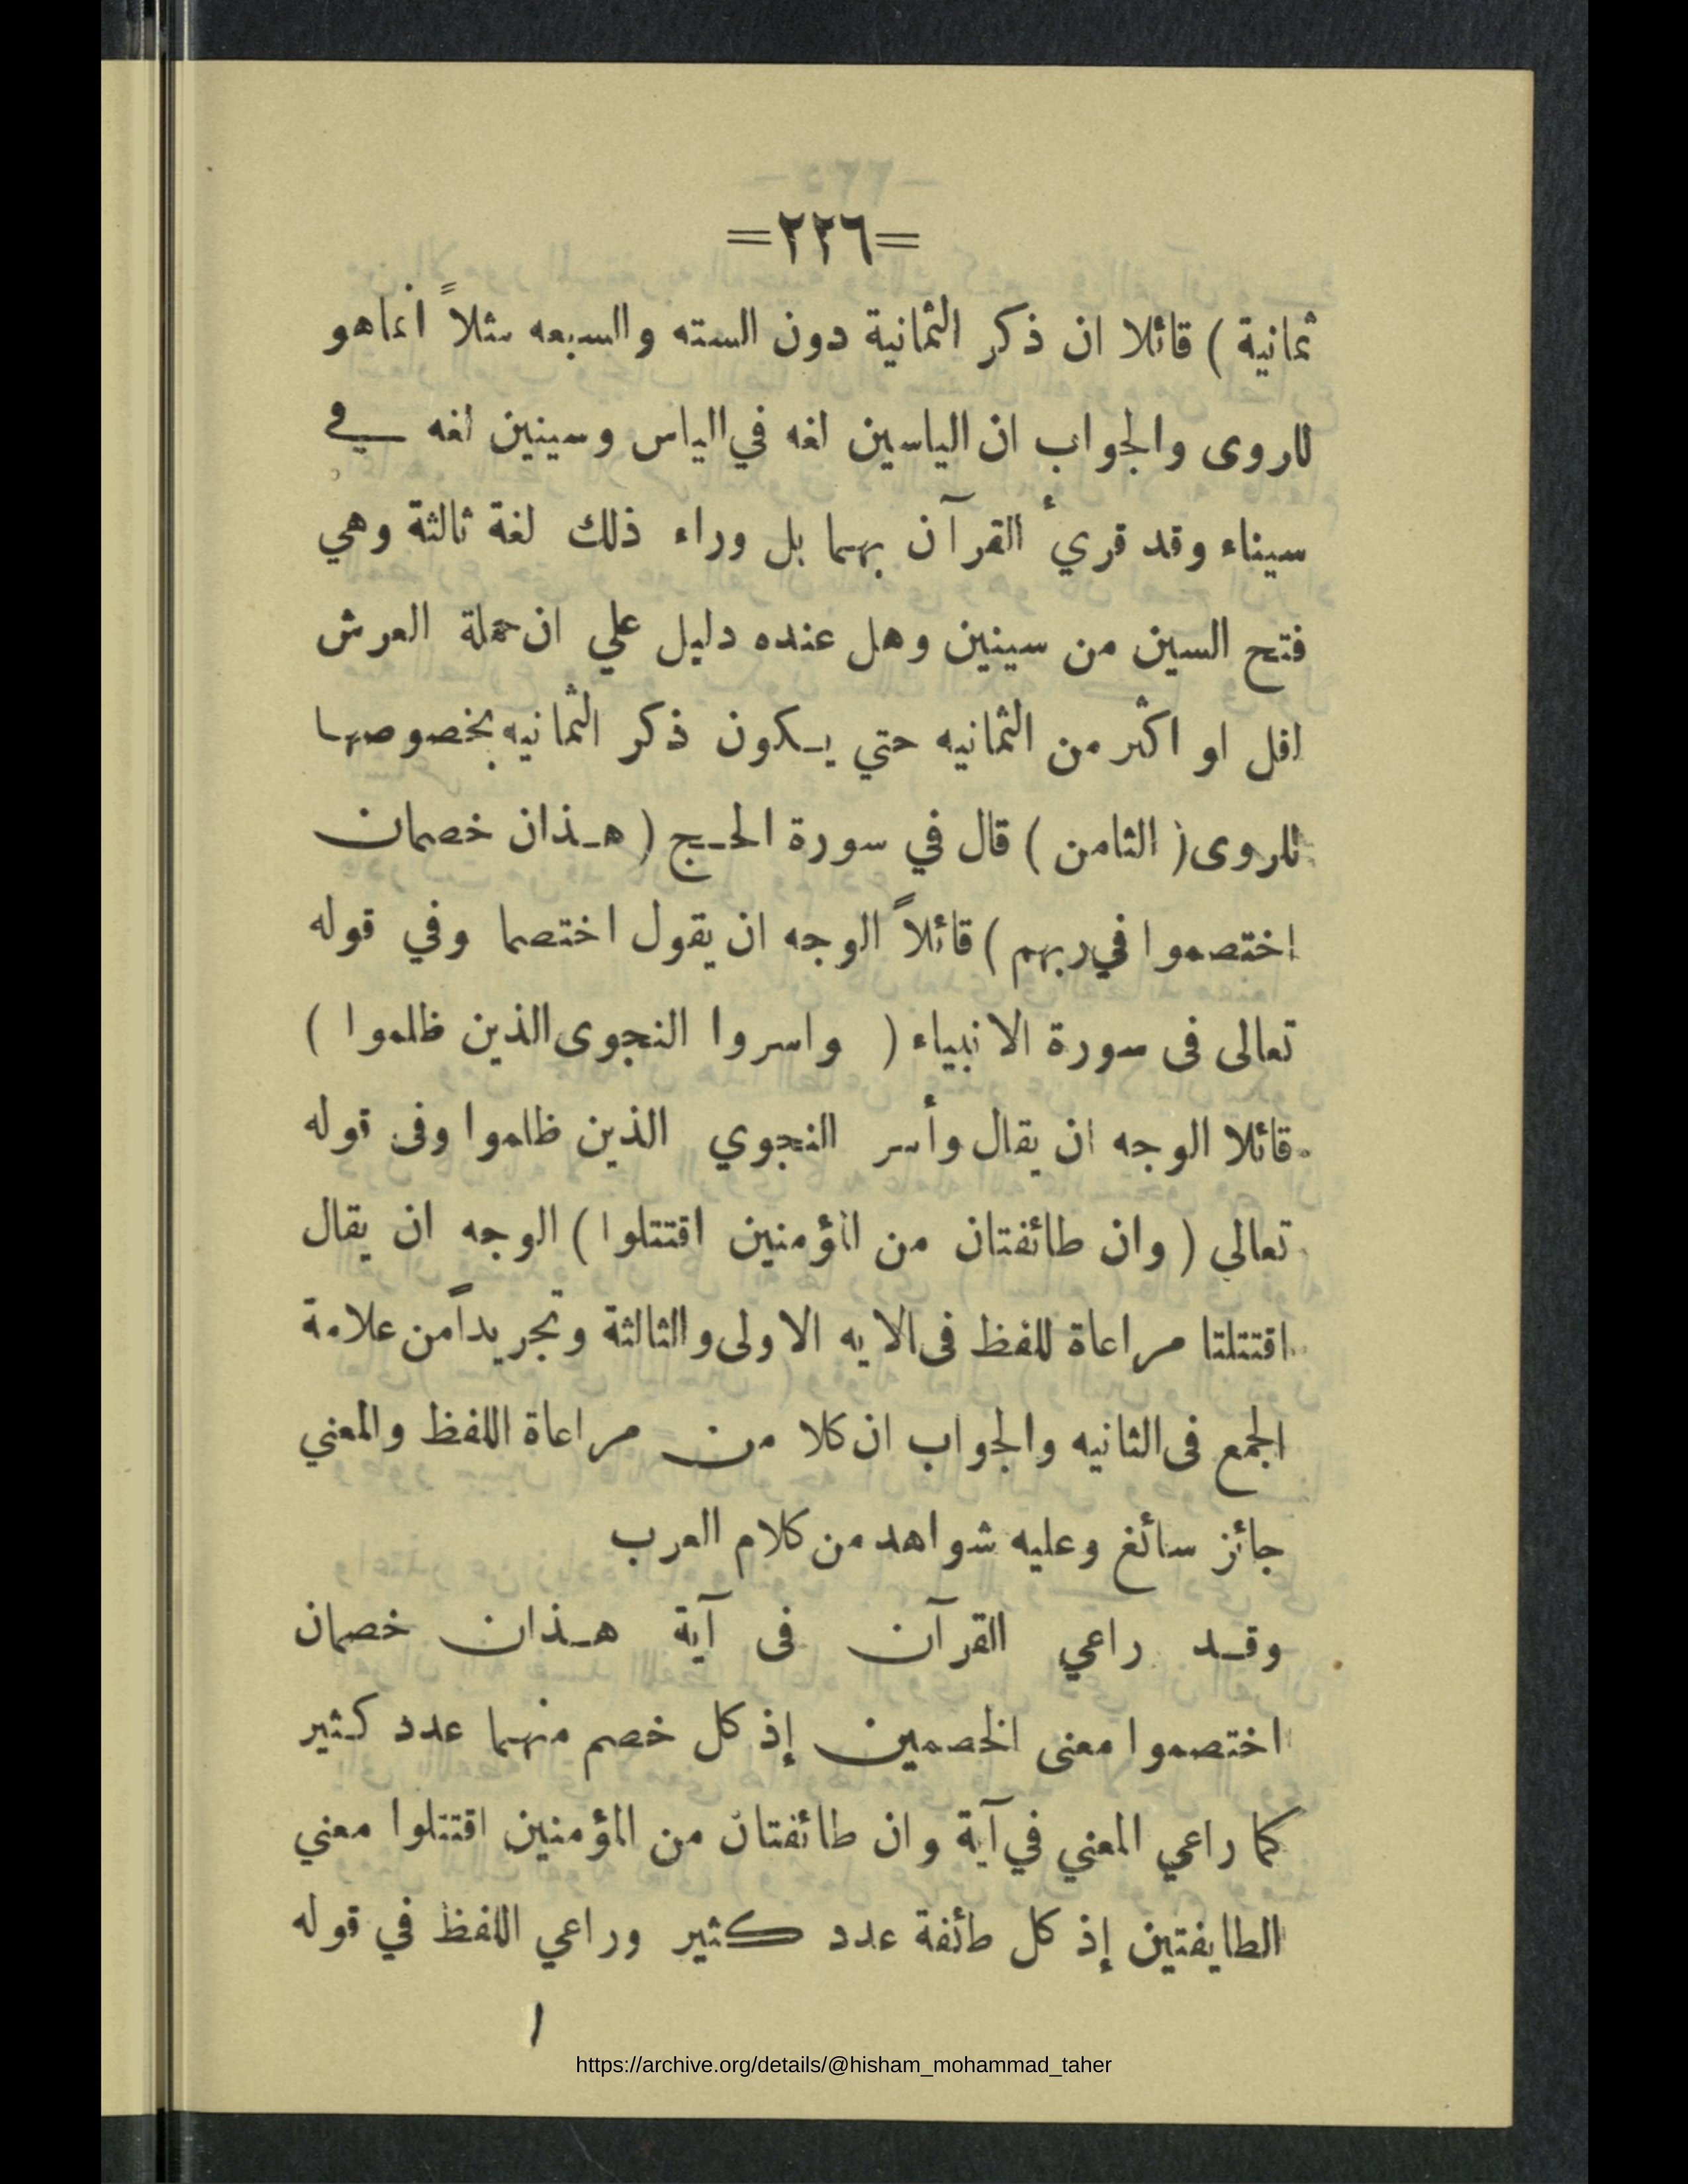 =٢٢٦=
ثمانية ) قائلا ان ذكر الثمانية دون السته والسبعه مثلاً انماهو
للروى والجواب ان الياسين لغه في الياس وسينين لغه في
سيناء وقد قريء القرآن بهما بل وراء ذلك لغة ثالثة وهي
فتح السين من سينين وهل عنده دليل علي ان حملة العرش
اقل او اكثر من الثمانيه حتي يكون ذكر الثمانيه بخصوصها
للروى ( الثامن ) قال في سورة الحج ( هذان خصمان
اختصموا في ربهم ) قائلاً الوجه ان يقول اختصما وفي قوله
تعالى فى سورة الانبياء ( واسروا النجوى الذين ظلموا )
قائلا الوجه ان يقال وأسر النجوي الذين ظلموا وفى قوله
تعالي ( وان طائفتان من المؤمنين اقتتلوا ) الوجه ان يقال
اقتتلتا مراعاة للفظ فى الايه الاولى والثالثة وتجريداً من علامة
الجمع فى الثانيه والجواب ان كلا من مراعاة اللفظ والمعني
جائز سائغ وعليه شواهد من كلام العرب
وقد راعي القرآن فى آية هذان خصمان
اختصموا معنى الخصمين إذ كل خصم منهما عدد كثير
كما راعي المعني في آية وان طائفتان من المؤمنين اقتتلوا معني
الطايفتين إذ كل طائفة عدد كثير وراعي اللفظ في قوله
https://archive.org/details/@hisham_mohammad_taher